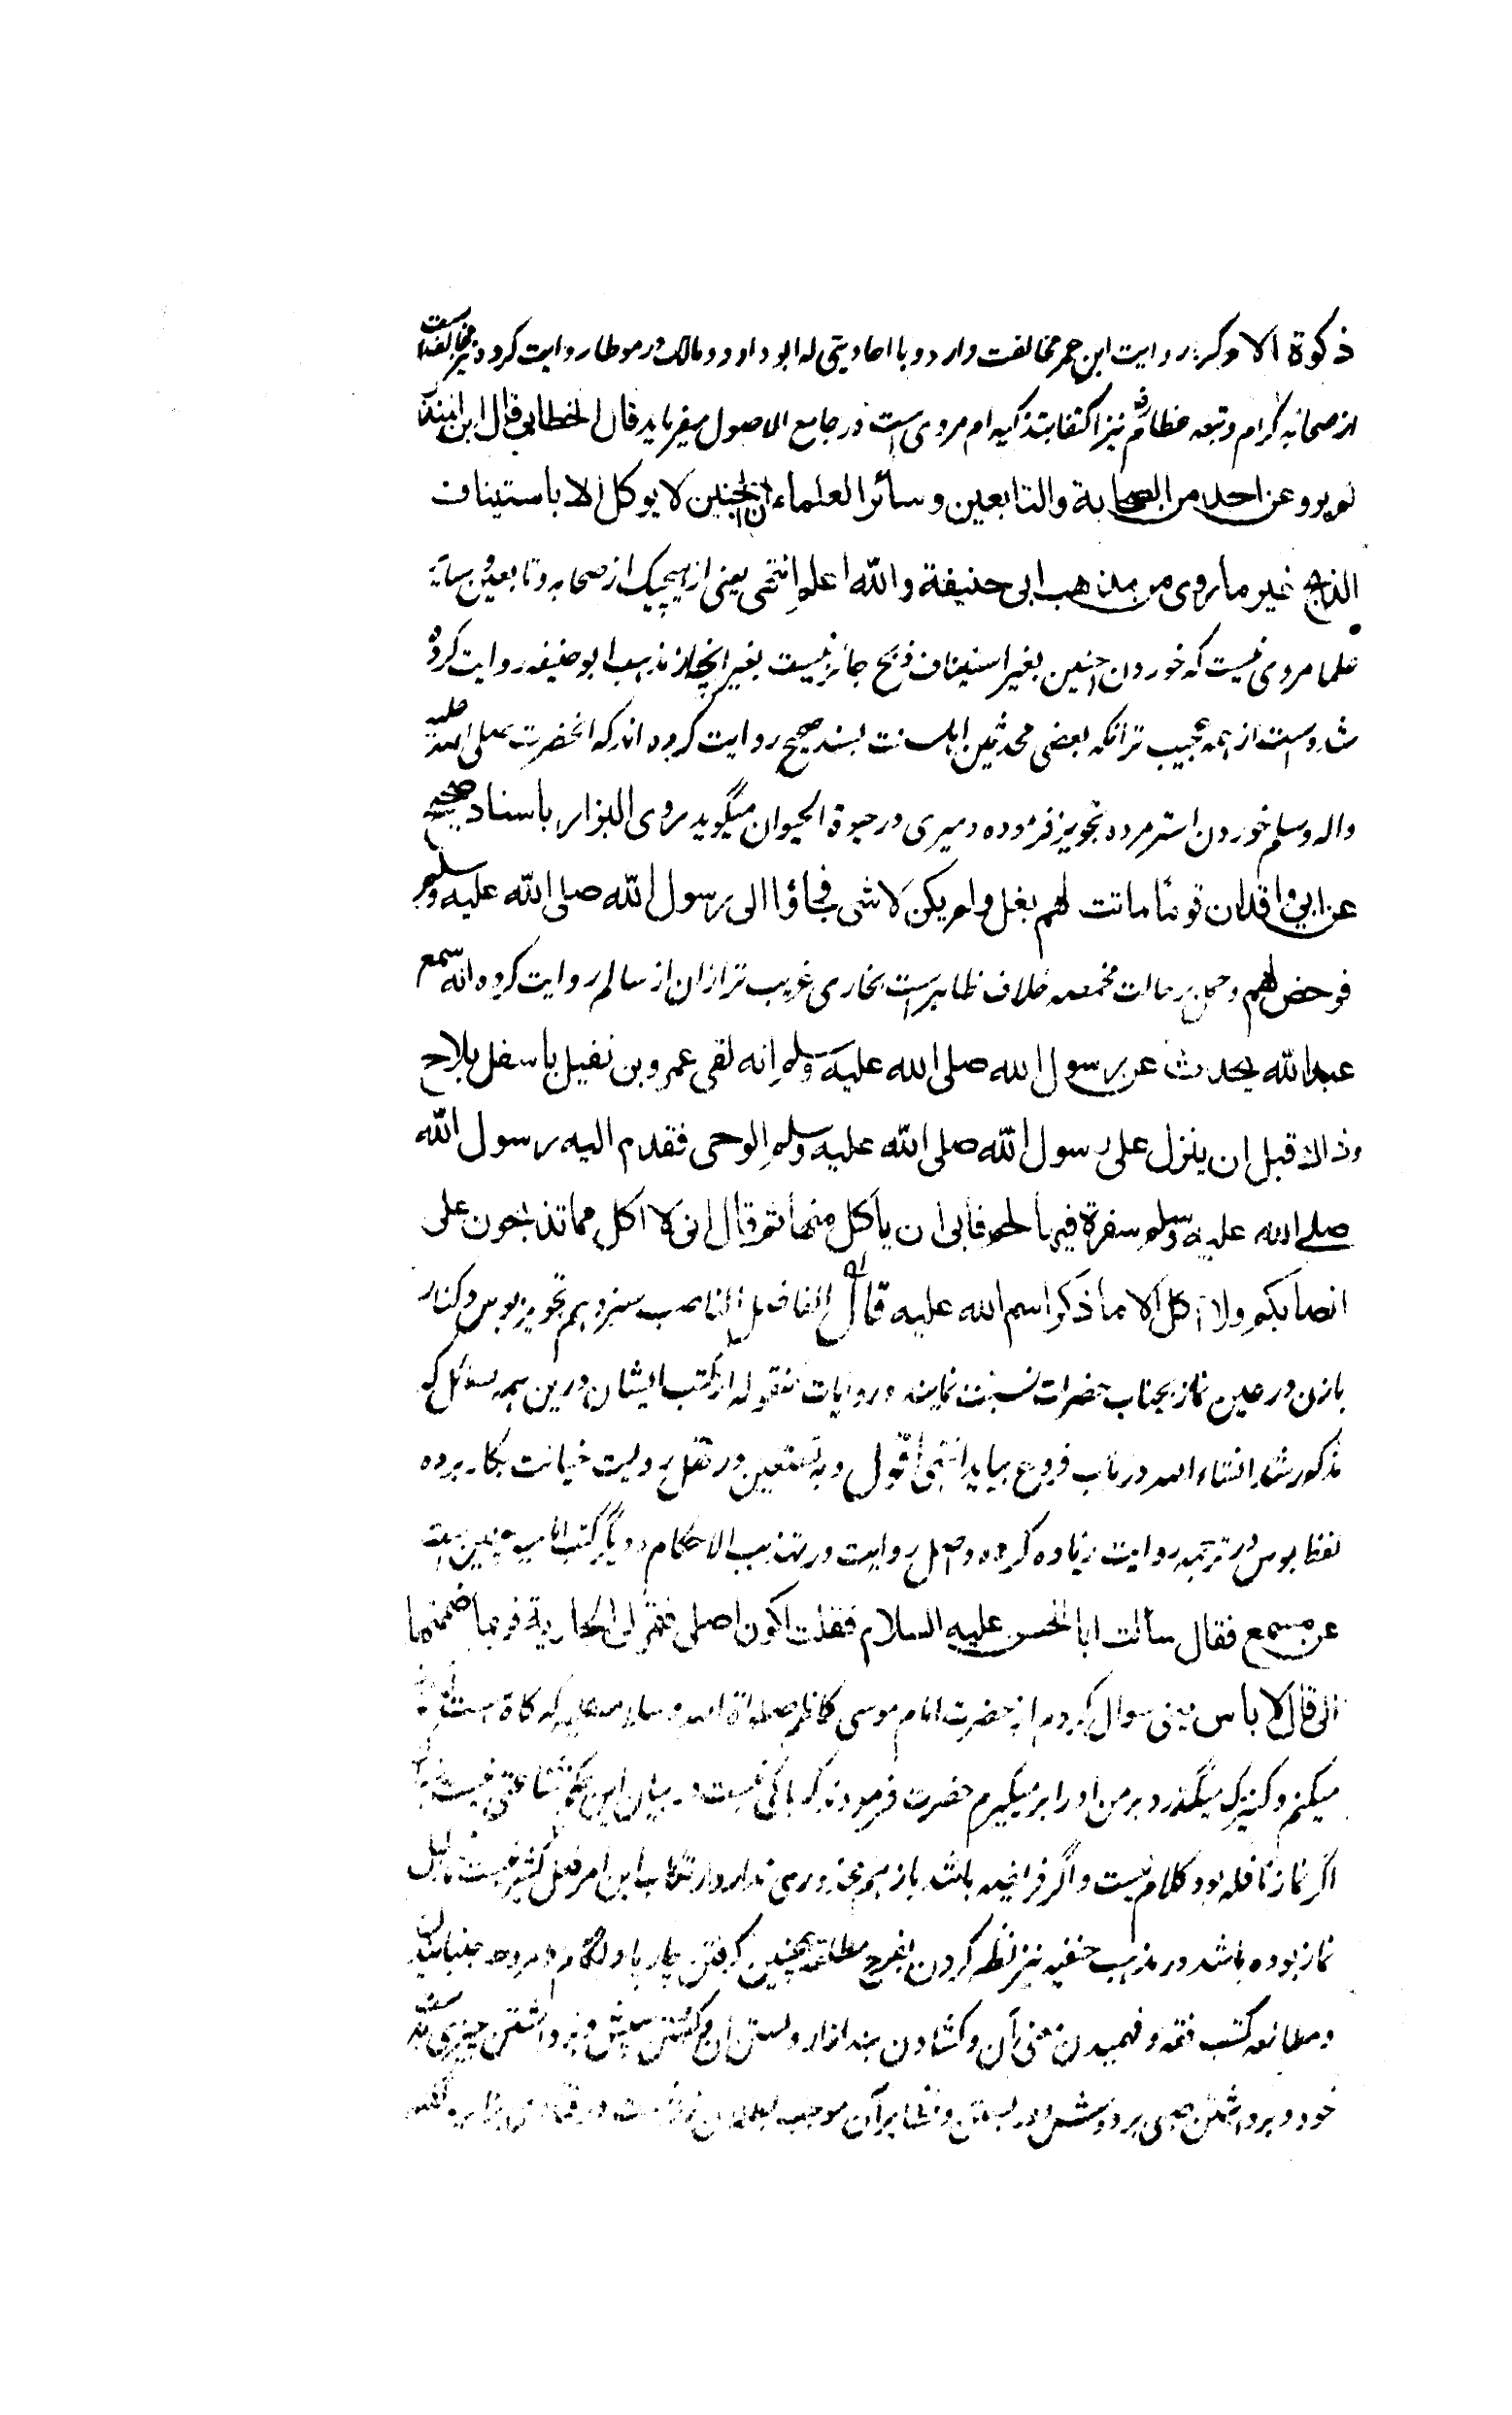 ذكوة الام كه با روايت ابن عمر مخالفت دارد و با احاديثی كه ابو داود و مالك در موطا روايت كرده نیز مخالفست
از صحابهٔ كرام و تبعه عظام نيز اكتفا بتذكيه ام مروی است در جامع الاصول ميفرمايد قال الخطابي قال ابن المنذر
لم يرو عن احد من الصحابة والتابعين وسائر العلماء ان الجنين لا يوكل الا باستيناف
الذبح غير ما روی من مذهب ابی حنيفة والله اعلم انتهی يعنی از هيچيك از صحابه و تابعين و سائر
علما مروی نيست كه خوردن جنين بغير استيناف ذبح جائز نيست بغير انچه از مذهب ابو حنيفه روايت كرده
شده است از همه عجيب تر انكه بعضی محدثين اهل سنت بسند صحيح روايت كرده اند كه انحضرت صلی الله عليه
واله وسلم خوردن استر مرده تجويز فرموده دميری در حيوة الحيوان ميگويد روی البزار باسناد صحيح
عن ابی واقد ان قوما ماتت لهم بغل ولم يكن لا شی فجاؤا الی رسول الله صلی الله عليه وسلم
فرخص لهم وحمل بر حالت مخمصه خلاف ظاهر است بخاری غريب تر ازان از سالم روايت كرده انه سمع
عبد الله يحدث عن رسول الله صلی الله عليه وسلم انه لقی عمرو بن نفيل باسفل بلاح
وذالك قبل ان ينزل علی رسول الله صلی الله عليه وسلم الوحی فقدم اليه رسول الله
صلے الله عليه وسلم سفرة فيها لحم فابی ان ياكل منها ثم قال انی لا اكل مما تذبحون علی
انصابكم ولا اكل الا ما ذكر اسم الله عليه قال الفاضل الناصب سيزدهم تجويز بوس و كنار
بازن در عين نماز بجناب حضرات نسبت نمايند و روايات منقوله از كتب ايشان درين همه مسائل كه
مذكور شد انشاء الله در باب فروع بيايد انتهی اقول وبه نستعين در نقل روايت خيانت بكار برده
لفظ بوس در ترجمه روايت زياده كرده و اصل روايت در تهذيب الاحكام و ديگر كتب اماميه چنين است
عن مسمع فقال سألت ابا الحسن عليه السلام فقلت اكون اصلی فتمر بی الجارية فربما ضممتها
الی قال لا باس يعنی سوال كردم از حضرت امام موسی كاظم صلواة الله و سلامه عليه كه
ميكنم و كنيزك ميگذرد بر من او را بر ميگيرم حضرت فرمودند كه باكی نيست در بيان اين حكم شناعتی نيست
اگر نماز نافله بود كلام نيست و اگر فريضه باشد باز هم محذوری ندارد ارتكاب اين امر فعل كثير نيست
نماز بوده باشد در مذهب حنفيه نيز نظر كردن بفرج مطلقه همچنين گرفتن چارپا و لگام و
و مطالعه كتب فقه و فهميدن معنی آن و كشادن بند ازار و بستن ان و برداشتن چيزی
خود و برداشتن صبی بر دوش و در بستن و نظاير آن موجب بطلان نماز نيست